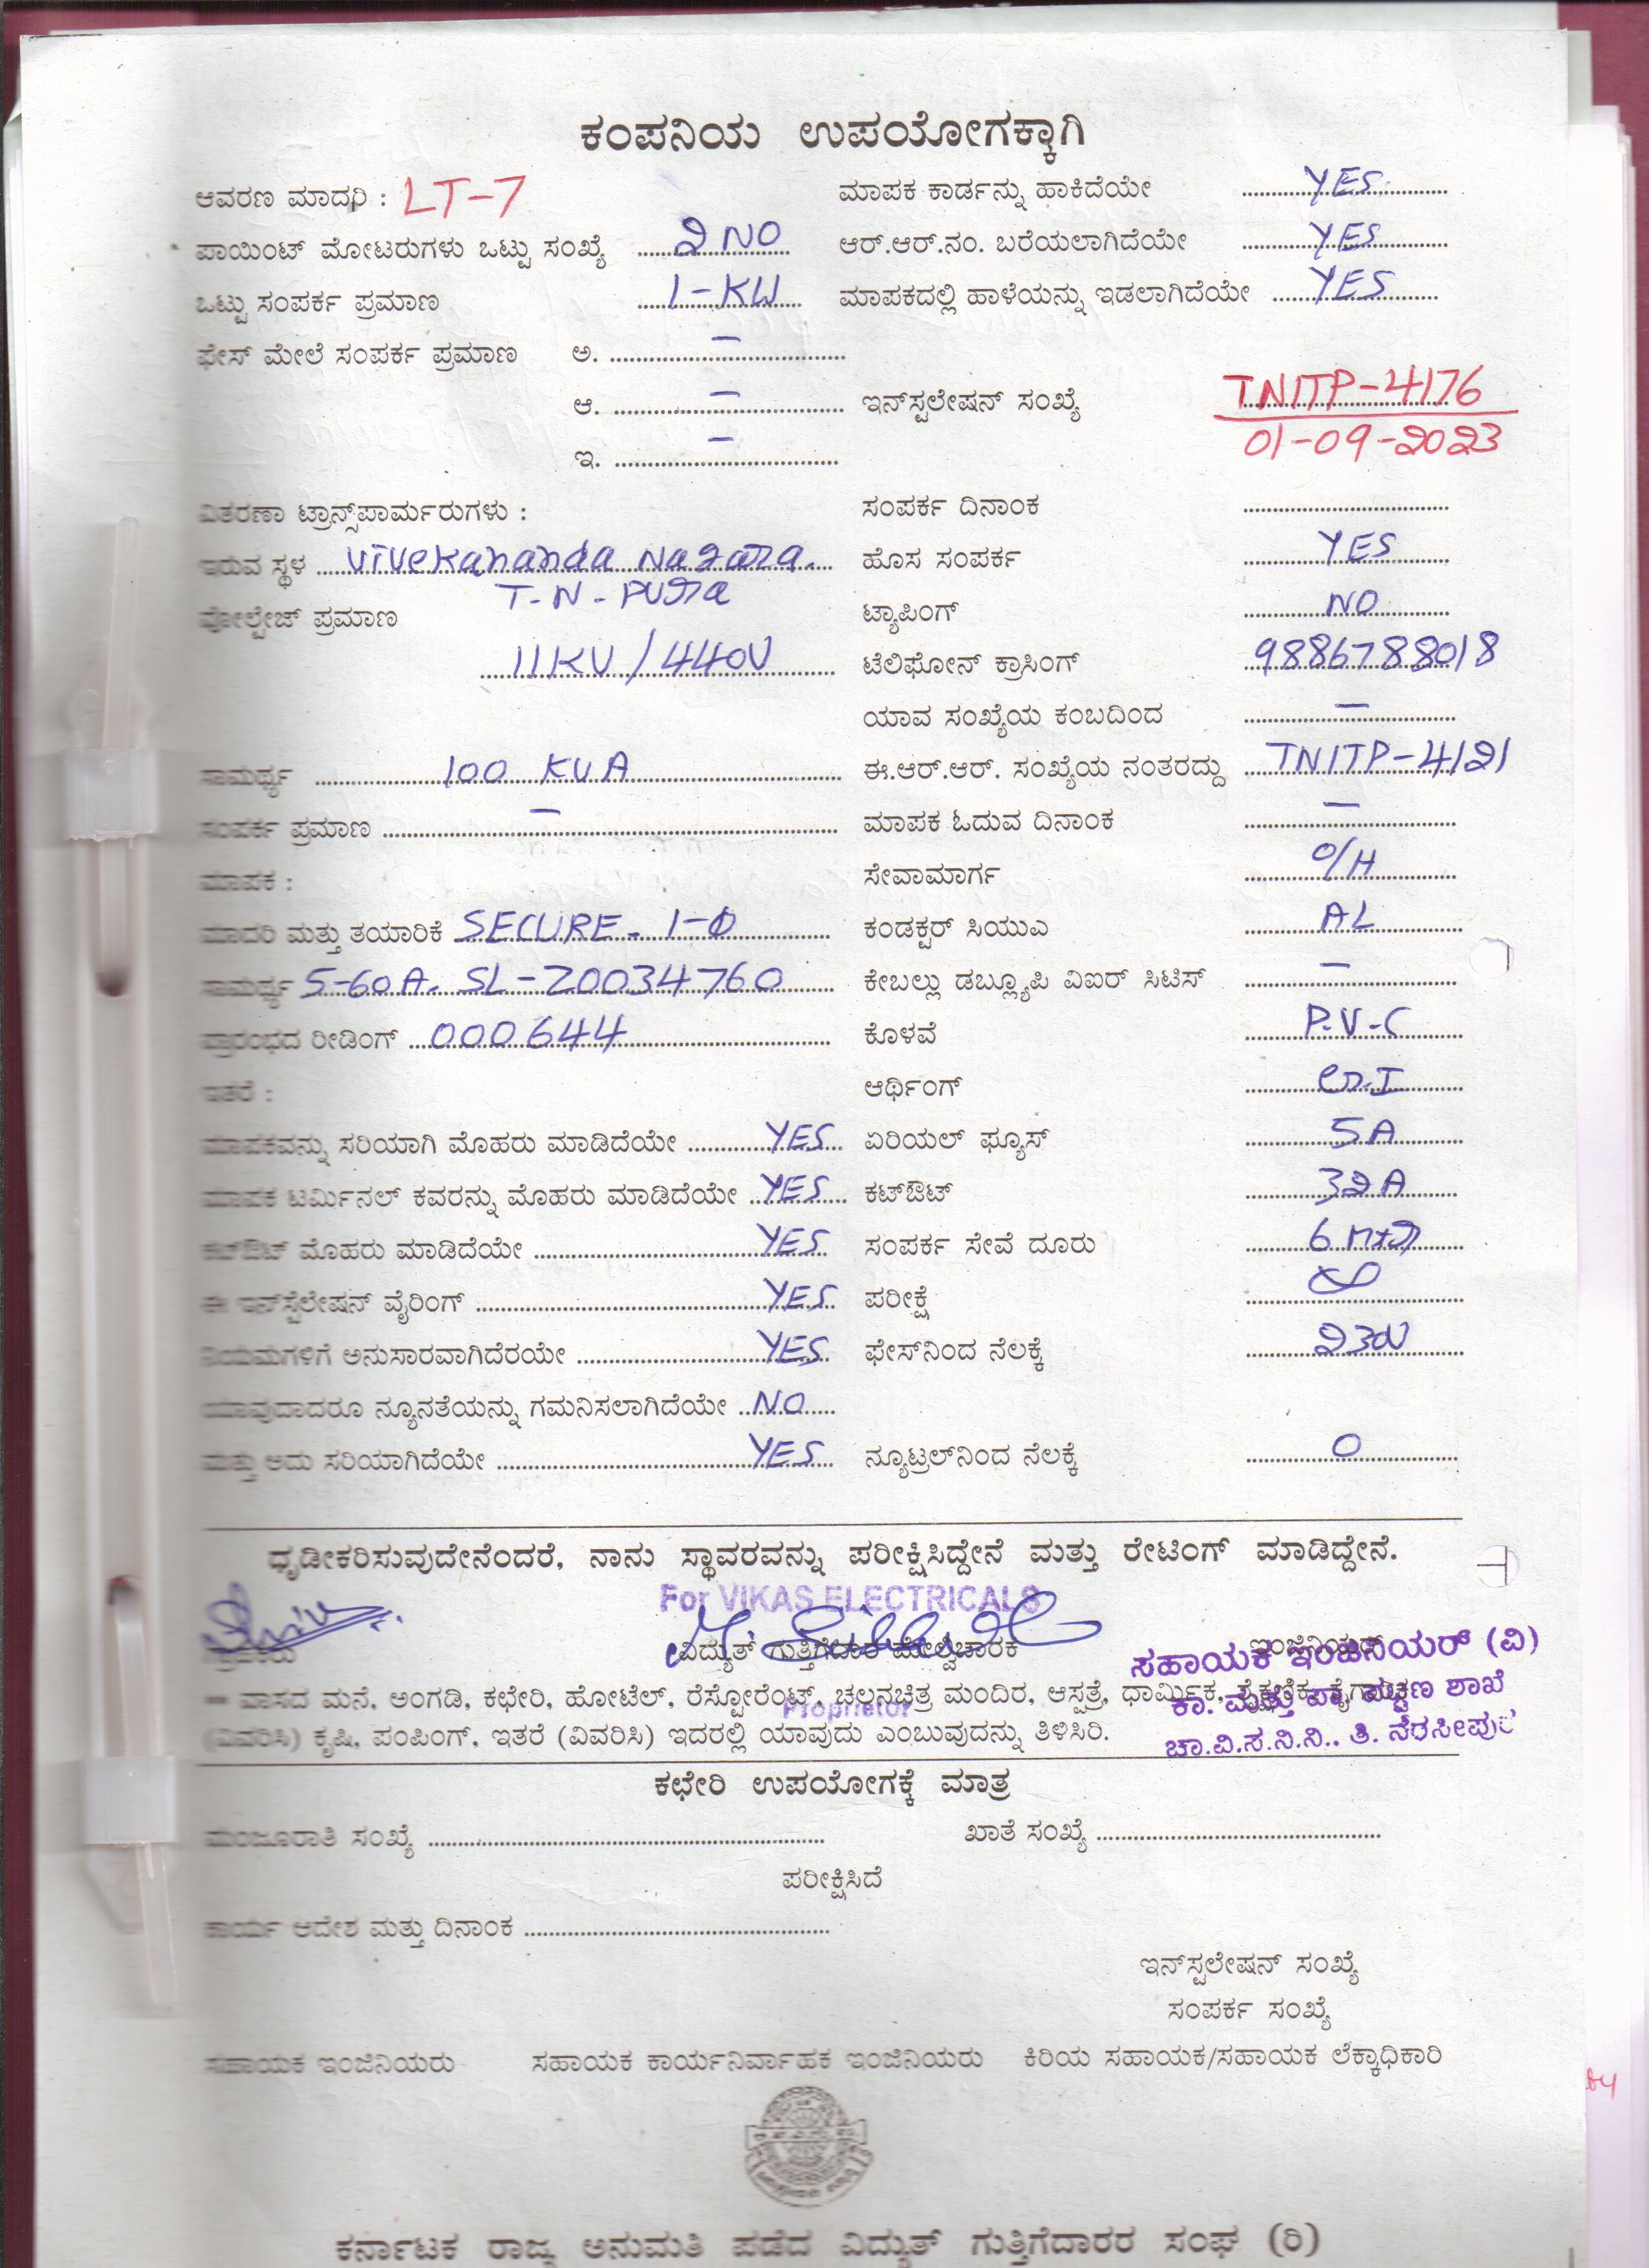 ಕಂಪನಿಯ ಉಪಯೋಗಕ್ಕಾಗಿ
ಆವರಣ ಮಾದರಿ : LT-7 ಮಾಪಕ ಕಾರ್ಡನ್ನು ಹಾಕಿದೆಯೇ YES
ಪಾಯಿಂಟ್ ಮೋಟರುಗಳು ಒಟ್ಟು ಸಂಖ್ಯೆ 2 NO ಆರ್.ಆರ್.ನಂ. ಬರೆಯಲಾಗಿದೆಯೇ YES
ಒಟ್ಟು ಸಂಪರ್ಕ ಪ್ರಮಾಣ 1-KW ಮಾಪಕದಲ್ಲಿ ಹಾಳೆಯನ್ನು ಇಡಲಾಗಿದೆಯೇ YES
ಫೇಸ್ ಮೇಲೆ ಸಂಪರ್ಕ ಪ್ರಮಾಣ ಅ. –
ಆ. – ಇನ್‌ಸ್ಟಲೇಷನ್ ಸಂಖ್ಯೆ TNITP-4176
01-09-2023
ಇ. –
ವಿತರಣಾ ಟ್ರಾನ್ಸ್‌ಪಾರ್ಮರುಗಳು : ಸಂಪರ್ಕ ದಿನಾಂಕ
ಇರುವ ಸ್ಥಳ Vivekananda Nagara. ಹೊಸ ಸಂಪರ್ಕ YES
T-N-PURA
ವೋಲ್ಟೇಜ್ ಪ್ರಮಾಣ ಟ್ಯಾಪಿಂಗ್ NO
11KV/440V ಟೆಲಿಫೋನ್ ಕ್ರಾಸಿಂಗ್ 9886788018
ಯಾವ ಸಂಖ್ಯೆಯ ಕಂಬದಿಂದ –
ಸಾಮರ್ಥ್ಯ 100 KVA ಈ.ಆರ್.ಆರ್. ಸಂಖ್ಯೆಯ ನಂತರದ್ದು TNITP-4121
ಸಂಪರ್ಕ ಪ್ರಮಾಣ – ಮಾಪಕ ಓದುವ ದಿನಾಂಕ –
ಮಾಪಕ : ಸೇವಾಮಾರ್ಗ O/H
ಮಾದರಿ ಮತ್ತು ತಯಾರಿಕೆ SECURE- 1-Φ ಕಂಡಕ್ಟರ್ ಸಿಯುಎ AL
ಸಾಮರ್ಥ್ಯ 5-60A. SL-Z0034760 ಕೇಬಲ್ಲು ಡಬ್ಲ್ಯೂಪಿ ವಿಐರ್ ಸಿಟಿಸ್ –
ಪ್ರಾರಂಭದ ರೀಡಿಂಗ್ 000644 ಕೊಳವೆ P.V-C
ಇತರೆ : ಆರ್ಥಿಂಗ್
ಮಾಪಕವನ್ನು ಸರಿಯಾಗಿ ಮೊಹರು ಮಾಡಿದೆಯೇ YES ಏರಿಯಲ್ ಫ್ಯೂಸ್ 5A
ಮಾಪಕ ಟರ್ಮಿನಲ್ ಕವರನ್ನು ಮೊಹರು ಮಾಡಿದೆಯೇ YES ಕಟ್‌ಔಟ್ 32A
ಕಟ್‌ಔಟ್ ಮೊಹರು ಮಾಡಿದೆಯೇ YES ಸಂಪರ್ಕ ಸೇವೆ ದೂರು 6 Mtr
ಈ ಇನ್‌ಸ್ಟೆಲೇಷನ್ ವೈರಿಂಗ್ YES ಪರೀಕ್ಷೆ
ನಿಯಮಗಳಿಗೆ ಅನುಸಾರವಾಗಿದೆರಯೇ YES ಫೇಸ್‌ನಿಂದ ನೆಲಕ್ಕೆ 230V
ಯಾವುದಾದರೂ ನ್ಯೂನತೆಯನ್ನು ಗಮನಿಸಲಾಗಿದೆಯೇ NO
ಮತ್ತು ಅದು ಸರಿಯಾಗಿದೆಯೇ YES ನ್ಯೂಟ್ರಲ್‌ನಿಂದ ನೆಲಕ್ಕೆ 0
ಧೃಡೀಕರಿಸುವುದೇನೆಂದರೆ, ನಾನು ಸ್ಥಾವರವನ್ನು ಪರೀಕ್ಷಿಸಿದ್ದೇನೆ ಮತ್ತು ರೇಟಿಂಗ್ ಮಾಡಿದ್ದೇನೆ.
For VIKAS ELECTRICALS
ವಿದ್ಯುತ್ ಗುತ್ತಿಗೆದಾರ ಮೇಲ್ವಿಚಾರಕ ಇಂಜಿನಿಯರ್
ಸಹಾಯಕ ಇಂಜಿನಿಯರ್ (ವಿ)
ವಾಸದ ಮನೆ, ಅಂಗಡಿ, ಕಛೇರಿ, ಹೋಟೆಲ್, ರೆಸ್ಟೋರೆಂಟ್, ಚಲನಚಿತ್ರ ಮಂದಿರ, ಆಸ್ಪತ್ರೆ, ಧಾರ್ಮಿಕ, ಶೈಕ್ಷಣಿಕ, ಕೈಗಾರಿಕ
Proprietor ಕಾ. ಮತ್ತು ಪಾ. ಪಟ್ಟಣ ಶಾಖೆ
(ವಿವರಿಸಿ) ಕೃಷಿ, ಪಂಪಿಂಗ್, ಇತರೆ (ವಿವರಿಸಿ) ಇದರಲ್ಲಿ ಯಾವುದು ಎಂಬುವುದನ್ನು ತಿಳಿಸಿರಿ.
ಚಾ.ವಿ.ಸ.ನಿ.ನಿ.. ತಿ. ನರಸೀಪುರ
ಕಛೇರಿ ಉಪಯೋಗಕ್ಕೆ ಮಾತ್ರ
ಮಂಜೂರಾತಿ ಸಂಖ್ಯೆ ಖಾತೆ ಸಂಖ್ಯೆ
ಪರೀಕ್ಷಿಸಿದೆ
ಕಾರ್ಯ ಆದೇಶ ಮತ್ತು ದಿನಾಂಕ
ಇನ್‌ಸ್ಟಲೇಷನ್ ಸಂಖ್ಯೆ
ಸಂಪರ್ಕ ಸಂಖ್ಯೆ
ಸಹಾಯಕ ಇಂಜಿನಿಯರು ಸಹಾಯಕ ಕಾರ್ಯನಿರ್ವಾಹಕ ಇಂಜಿನಿಯರು ಕಿರಿಯ ಸಹಾಯಕ/ಸಹಾಯಕ ಲೆಕ್ಕಾಧಿಕಾರಿ
ಕರ್ನಾಟಕ ರಾಜ್ಯ ಅನುಮತಿ ಪಡೆದ ವಿದ್ಯುತ್ ಗುತ್ತಿಗೆದಾರರ ಸಂಘ (ರಿ)